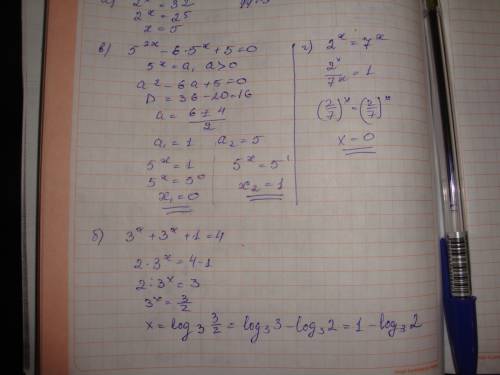 2ˣ = 32
2ˣ = 2⁵
x = 5
в) 5²ˣ - 6·5ˣ + 5 = 0
5ˣ = a, a > 0
a² - 6a + 5 = 0
D = 36 - 20 = 16
a = (6 ± 4)/2
a₁ = 1 a₂ = 5
5ˣ = 1 5ˣ = 5¹
5ˣ = 5⁰ x₂ = 1
x₁ = 0
г) 2ˣ = 7ˣ
2ˣ/7ˣ = 1
(2/7)ˣ = (2/7)⁰
x = 0
б) 3ˣ + 3ˣ + 1 = 4
2·3ˣ = 4-1
2·3ˣ = 3
3ˣ = 3/2
x = log₃ 3/2 = log₃3 - log₃2 = 1 - log₃2